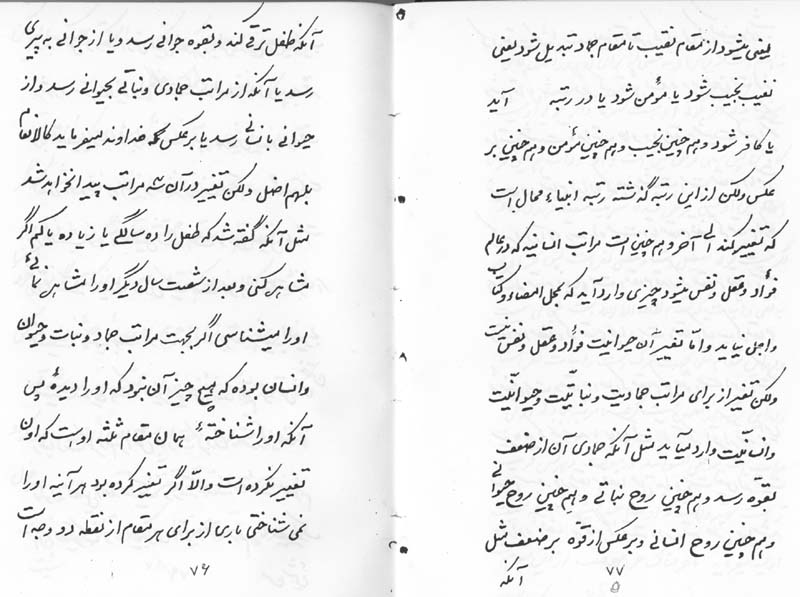 یعنی میشود از مقام نقیب تا مقام جماد تبدیل شود یعنی
نقیب نجیب شود یا مؤمن شود یا در رتبه آید
یا کافر شود و هم چنین نجیب و هم چنین مؤمن و هم چنین بر
عکس ولکن از این رتبه گذشته رتبه انبیاء محال است
که تغییر کند الی آخر و هم چنین است مراتب انسانیه که در عالم
فؤاد و عقل و نفس میشود چیزی وارد آید که امضاء و کتاب
و اجل نیاید و امّا تغییر آن حیوانیت فؤاد و عقل و نفس نیست
ولکن تغیر از برای مراتب جمادیت و نباتیّت و حیوانیّت
و انسانیّت وارد میآید مثل آنکه جمادی آن از ضعف
بقوه رسد و هم چنین روح نباتی و هم چنین روح حیوانی
و هم چنین روح انسانی و بر عکس از قوه بر ضعف مثل
آنکه
۷۷
آنکه طفل ترقی کند و بقوه جوانی رسد و یا از جوانی به پیری
رسد یا آنکه از مراتب جمادی و نباتی بحیوانی رسد و از
حیوانی بانسانی رسد یا بر عکس که خداوند میفرماید کالانعام
بل هم اضل ولکن تغییر در آن سه مراتب پیدا نخواهد شد
مثل آنکه گفته شد که طفل را ده سالگی یا زیاده یا کم اگر
مشاهده کنی و بعد از شصت سال دیگر او را مشاهده نمائی
او را میشناسی اگر بجهت مراتب جماد و نبات و حیوان
و انسان بوده که هیچ چیز آن نبود که او را دیدهٔ پس
آنکه او را شناختهٔ همان مقام ثلثه او است که اون
تغییر نکرده است والّا اگر تغییر کرده بود هر آینه او را
نمی شناختی باری از برای هر مقام از نقطه دو وجه است
۷۶